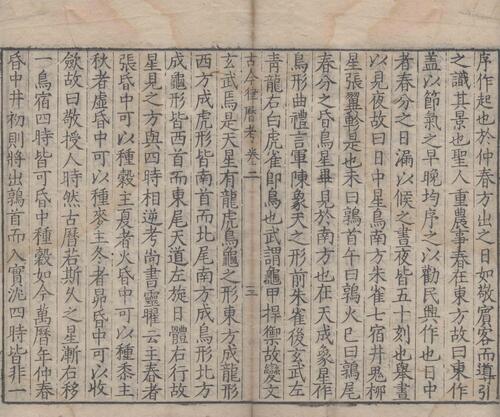 序作起也於仲春方出之日如敬賓客而導引
之識其景也聖人重農事春在東方故曰東作
蓋以節氣之早晚均序之以勸民興作也日中
者春分之日漏以候之晝夜皆五十刻也舉晝
以見夜故曰日中星鳥南方朱雀七宿井鬼柳
星張翼軫是也未曰鶉首午曰鶉火巳曰鶉尾
春分之昏鳥星畢見於南方也在天成象星作
鳥形曲禮言軍陳象天之形前朱雀後玄武左
青龍右白虎雀卽鳥也武謂龜甲捍禦故變文
古今律曆考 卷二 三
玄武焉是天星有龍虎鳥龜之形東方成龍形
西方成虎形皆南首而北尾南方成鳥形北方
成龜形皆西首而東尾天道左旋日體右行故
星見之方與四時相逆考尚書靈曜云主春者
張昏中可以種穀主夏者火昏中可以種黍主
秋者虛昏中可以種麥主冬者昴昏中可以收
斂故曰敬授人時然古曆若斯久之星漸右移
一鳥宿四時皆可昏中種穀如今萬曆年仲春
昏中井初則將出鶉首而入實沈四時皆非一